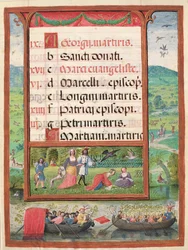 ix. A Georgij. martiris.
b Sancti donati.
c Marci euangeliste.
d Marcelli. episcopi.
e Longini. martiris.
f Patricij episcopi.
g Petri martiris.
A Marciani. martiris.